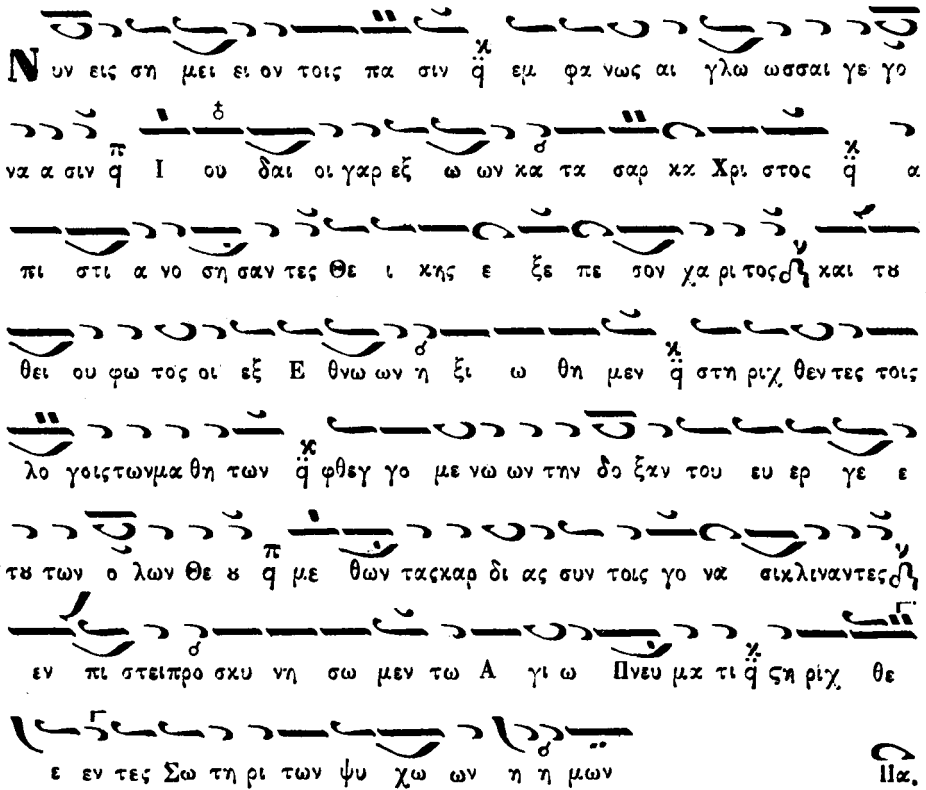 Νυν εις ση μει ει ον τοις πα σιν q̈ εμ φα νως αι γλω ωσσαι γε γο
να α σιν q Ι ου δαι οι γαρ εξ ω ων κα τα σαρ κα Χρι στος q̈ α
πι στι α νο ση σαν τες Θε ι κης ε ξε πε σον χα ρι τος και τȣ
θει ου φω τος οι εξ Ε θνω ων η ξι ω θη μεν q̈ στη ριχ θεν τες τοις
λο γοις των μα θη των q̈ φθεγ γο με νω ων την δο ξαν του ευ ερ γε ε
τȣ των ο λων Θε ȣ q με θων τας καρ δι ας συν τοις γο να σι κλιναντες
εν πι στει προ σκυ νη σω μεν τω Α γι ω Πνευ μα τι q̈ ϛη ρίχ θε
ε εν τες Σω τη ρι των ψυ χω ων η η μων Πα.